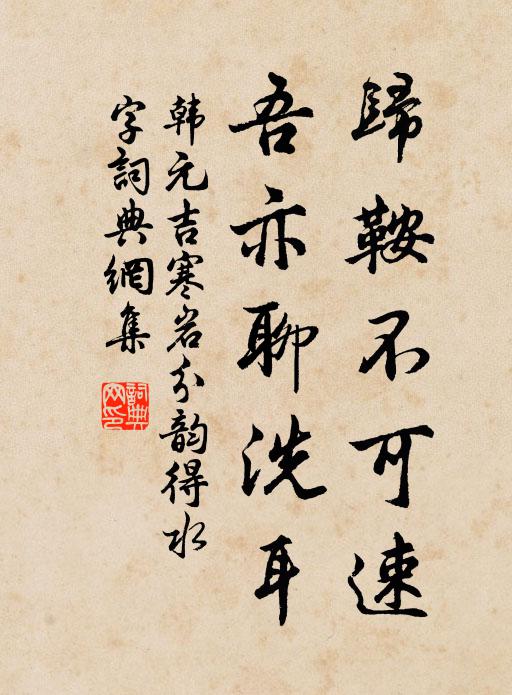 歸鞍不可速
吾亦聊洗耳
韩元吉寒岩分韵得水
字詞典網集
詞典
网印